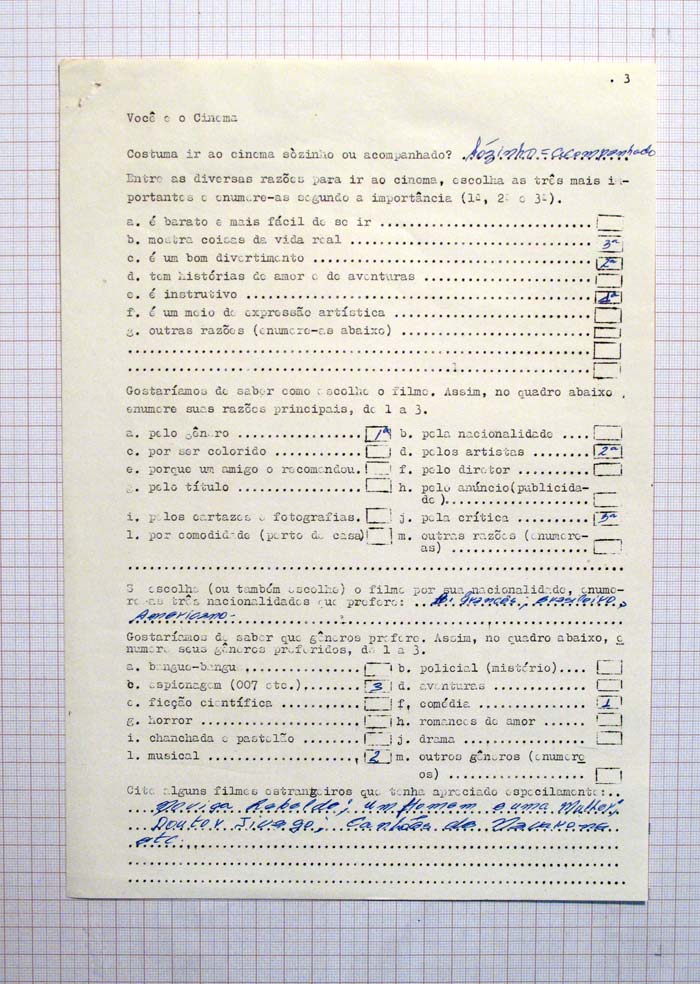 . 3
Você e o Cinema
Costuma ir ao cinema sòzinho ou acompanhado? Sózinho = acompanhado
Entre as diversas razões para ir ao cinema, escolha as três mais im-
portantes e enumere-as segundo a importância (1ª, 2ª e 3ª).
a. é barato e mais fácil de se ir
b. mostra coisas da vida real 3ª
c. é um bom divertimento 2ª
d. tem histórias de amor e de aventuras
e. é instrutivo 1ª
f. é um meio de expressão artística
g. outras razões (enumere-as abaixo)
Gostaríamos de saber como escolhe o filme. Assim, no quadro abaixo,
enumere suas razões principais, de 1 a 3.
a. pelo gênero 1ª b. pela nacionalidade
c. por ser colorido d. pelos artistas 2ª
e. porque um amigo o recomendou. f. pelo diretor
g. pelo título h. pelo anúncio(publicida-
de)
i. pelos cartazes e fotografias. j. pela crítica 3ª
l. por comodidade (perto de casa) m. outras razões (enumere-
as)
S escolhe (ou também escolhe) o filme por sua nacionalidade, enume-
re-as três nacionalidades que prefere: Francês; Brasileiro,
Americano.
Gostaríamos de saber que gêneros prefere. Assim, no quadro abaixo, e
numere seus gêneros preferidos, de 1 a 3.
a. bangue-bangue b. policial (mistério)
c. espionagem (007 etc.) 3 d. aventuras
e. ficção científica f. comédia 1
g. horror h. romances de amor
i. chanchada e pastelão j. drama
l. musical 2 m. outros gêneros (enumere
os)
Cite alguns filmes estrangeiros que tenha apreciado especilamente:
Noviça Rebelde; um Homem e uma Mulher;
Doutor Jivago; Canhões de Navarona
etc.